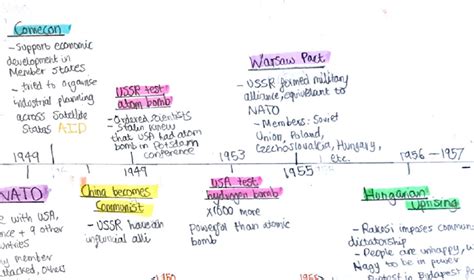 Comecon
- Support economic
development in
Member states
- tried to organise
industrial planning
across Satellite
States AID
USSR test
atom bomb
- Ordered scientists
- Stalin knew
that USA had atom
bomb in Potsdam
conference
Warsaw Pact
- USSR formed military
alliance, equivalent to
NATO
- Members: Soviet
Union, Poland,
Czechoslovakia, Hungary,
etc.
1949
1949
1953
1955
1956 - 1957
NATO
with USA,
+ 9 other
member
attacked
China becomes
Communist
- USSR have an
influncial alli
USA test
hydrogen bomb
X1000 more
powerful than atomic
bomb
Hungarian
Uprising
- Rakosi imposes commun
dictatorship
- People are unhappy, w
Nagy to be in power